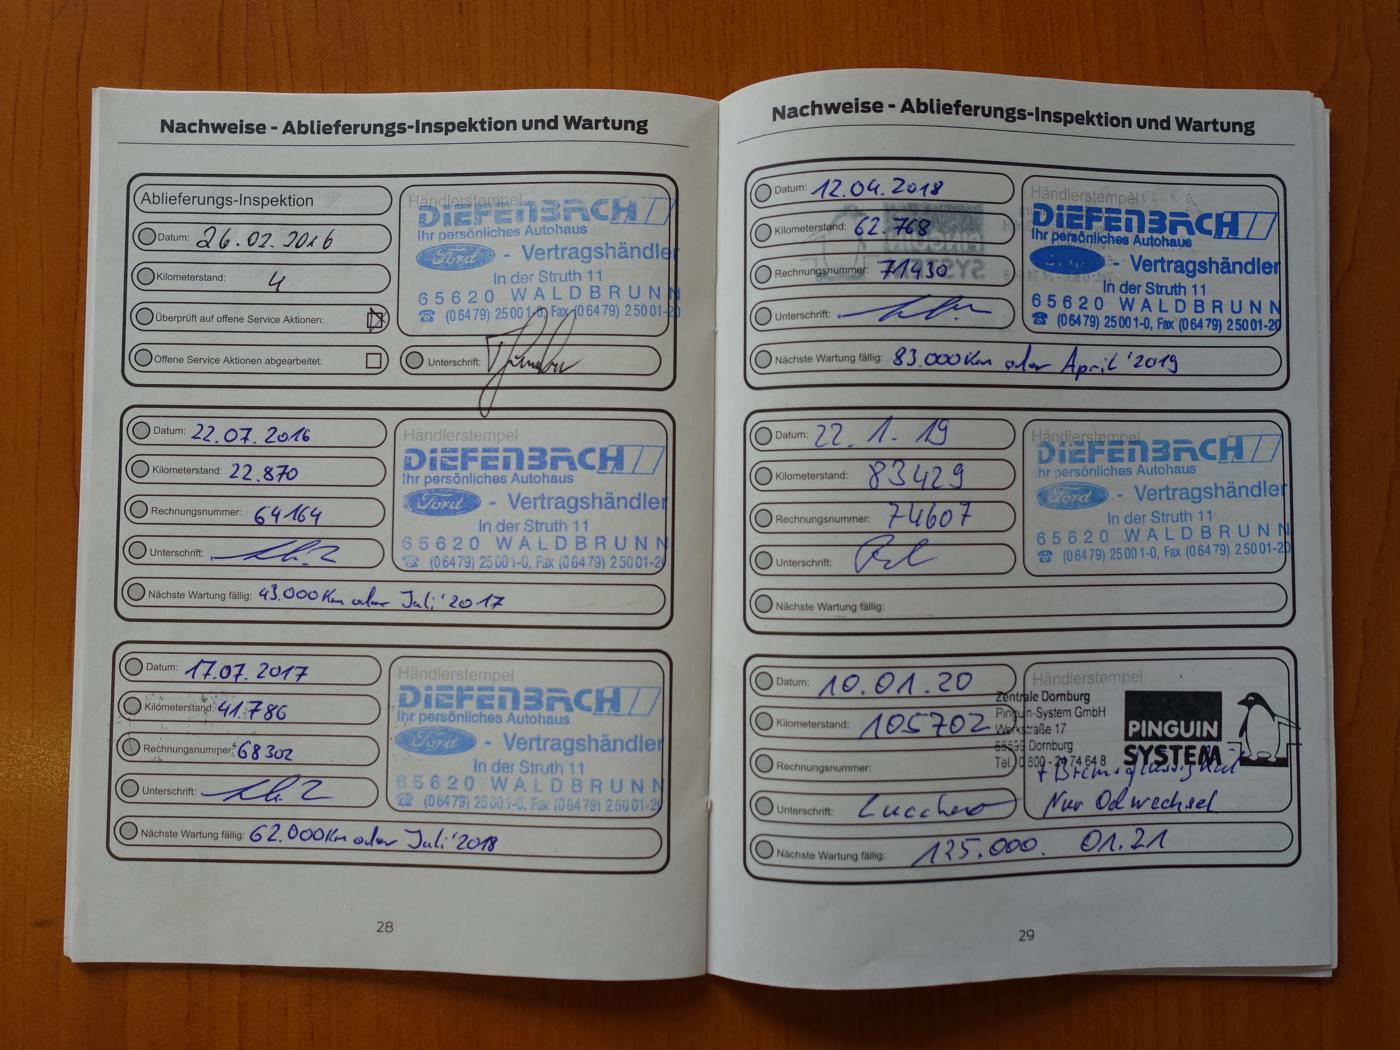 Nachweise - Ablieferungs-Inspektion und Wartung
Ablieferungs-Inspektion
Datum: 26.02.2016
Kilometerstand: 4
Überprüft auf offene Service Aktionen:
Offene Service Aktionen abgearbeitet:
Händlerstempel
DIEFENBACH
Ihr persönliches Autohaus
Ford - Vertragshändler
In der Struth 11
65620 WALDBRUNN
☎ (06479) 25001-0, Fax (06479) 25001-20
Unterschrift:
Datum: 22.07.2016
Kilometerstand: 22.870
Rechnungsnummer: 64164
Unterschrift:
Händlerstempel
DIEFENBACH
Ihr persönliches Autohaus
Ford - Vertragshändler
In der Struth 11
65620 WALDBRUNN
☎ (06479) 25001-0, Fax (06479) 25001-20
Nächste Wartung fällig: 43.000Km oder Juli '2017
Datum: 17.07.2017
Kilometerstand: 41.786
Rechnungsnummer: 68302
Unterschrift:
Händlerstempel
DIEFENBACH
Ihr persönliches Autohaus
Ford - Vertragshändler
In der Struth 11
65620 WALDBRUNN
☎ (06479) 25001-0, Fax (06479) 25001-20
Nächste Wartung fällig: 62.000Km oder Juli '2018
28
Nachweise - Ablieferungs-Inspektion und Wartung
Datum: 12.04.2018
Kilometerstand: 62.768
Rechnungsnummer: 71430
Unterschrift:
Händlerstempel
DIEFENBACH
Ihr persönliches Autohaus
Ford - Vertragshändler
In der Struth 11
65620 WALDBRUNN
☎ (06479) 25001-0, Fax (06479) 25001-20
Nächste Wartung fällig: 83.000Km oder April '2019
Datum: 22.1.19
Kilometerstand: 83429
Rechnungsnummer: 74607
Unterschrift:
Händlerstempel
DIEFENBACH
Ihr persönliches Autohaus
Ford - Vertragshändler
In der Struth 11
65620 WALDBRUNN
☎ (06479) 25001-0, Fax (06479) 25001-20
Nächste Wartung fällig:
Datum: 10.01.20
Kilometerstand: 105702
Rechnungsnummer:
Unterschrift: Lucchero
Händlerstempel
Zentrale Dornburg
Pinguin-System GmbH
Werkstraße 17
65599 Dornburg
Tel. 0 800 - 24 74 64 8
PINGUIN
SYSTEM
+ Bremsflüssigkeit
Nur Ölwechsel
Nächste Wartung fällig: 125.000. 01.21
29